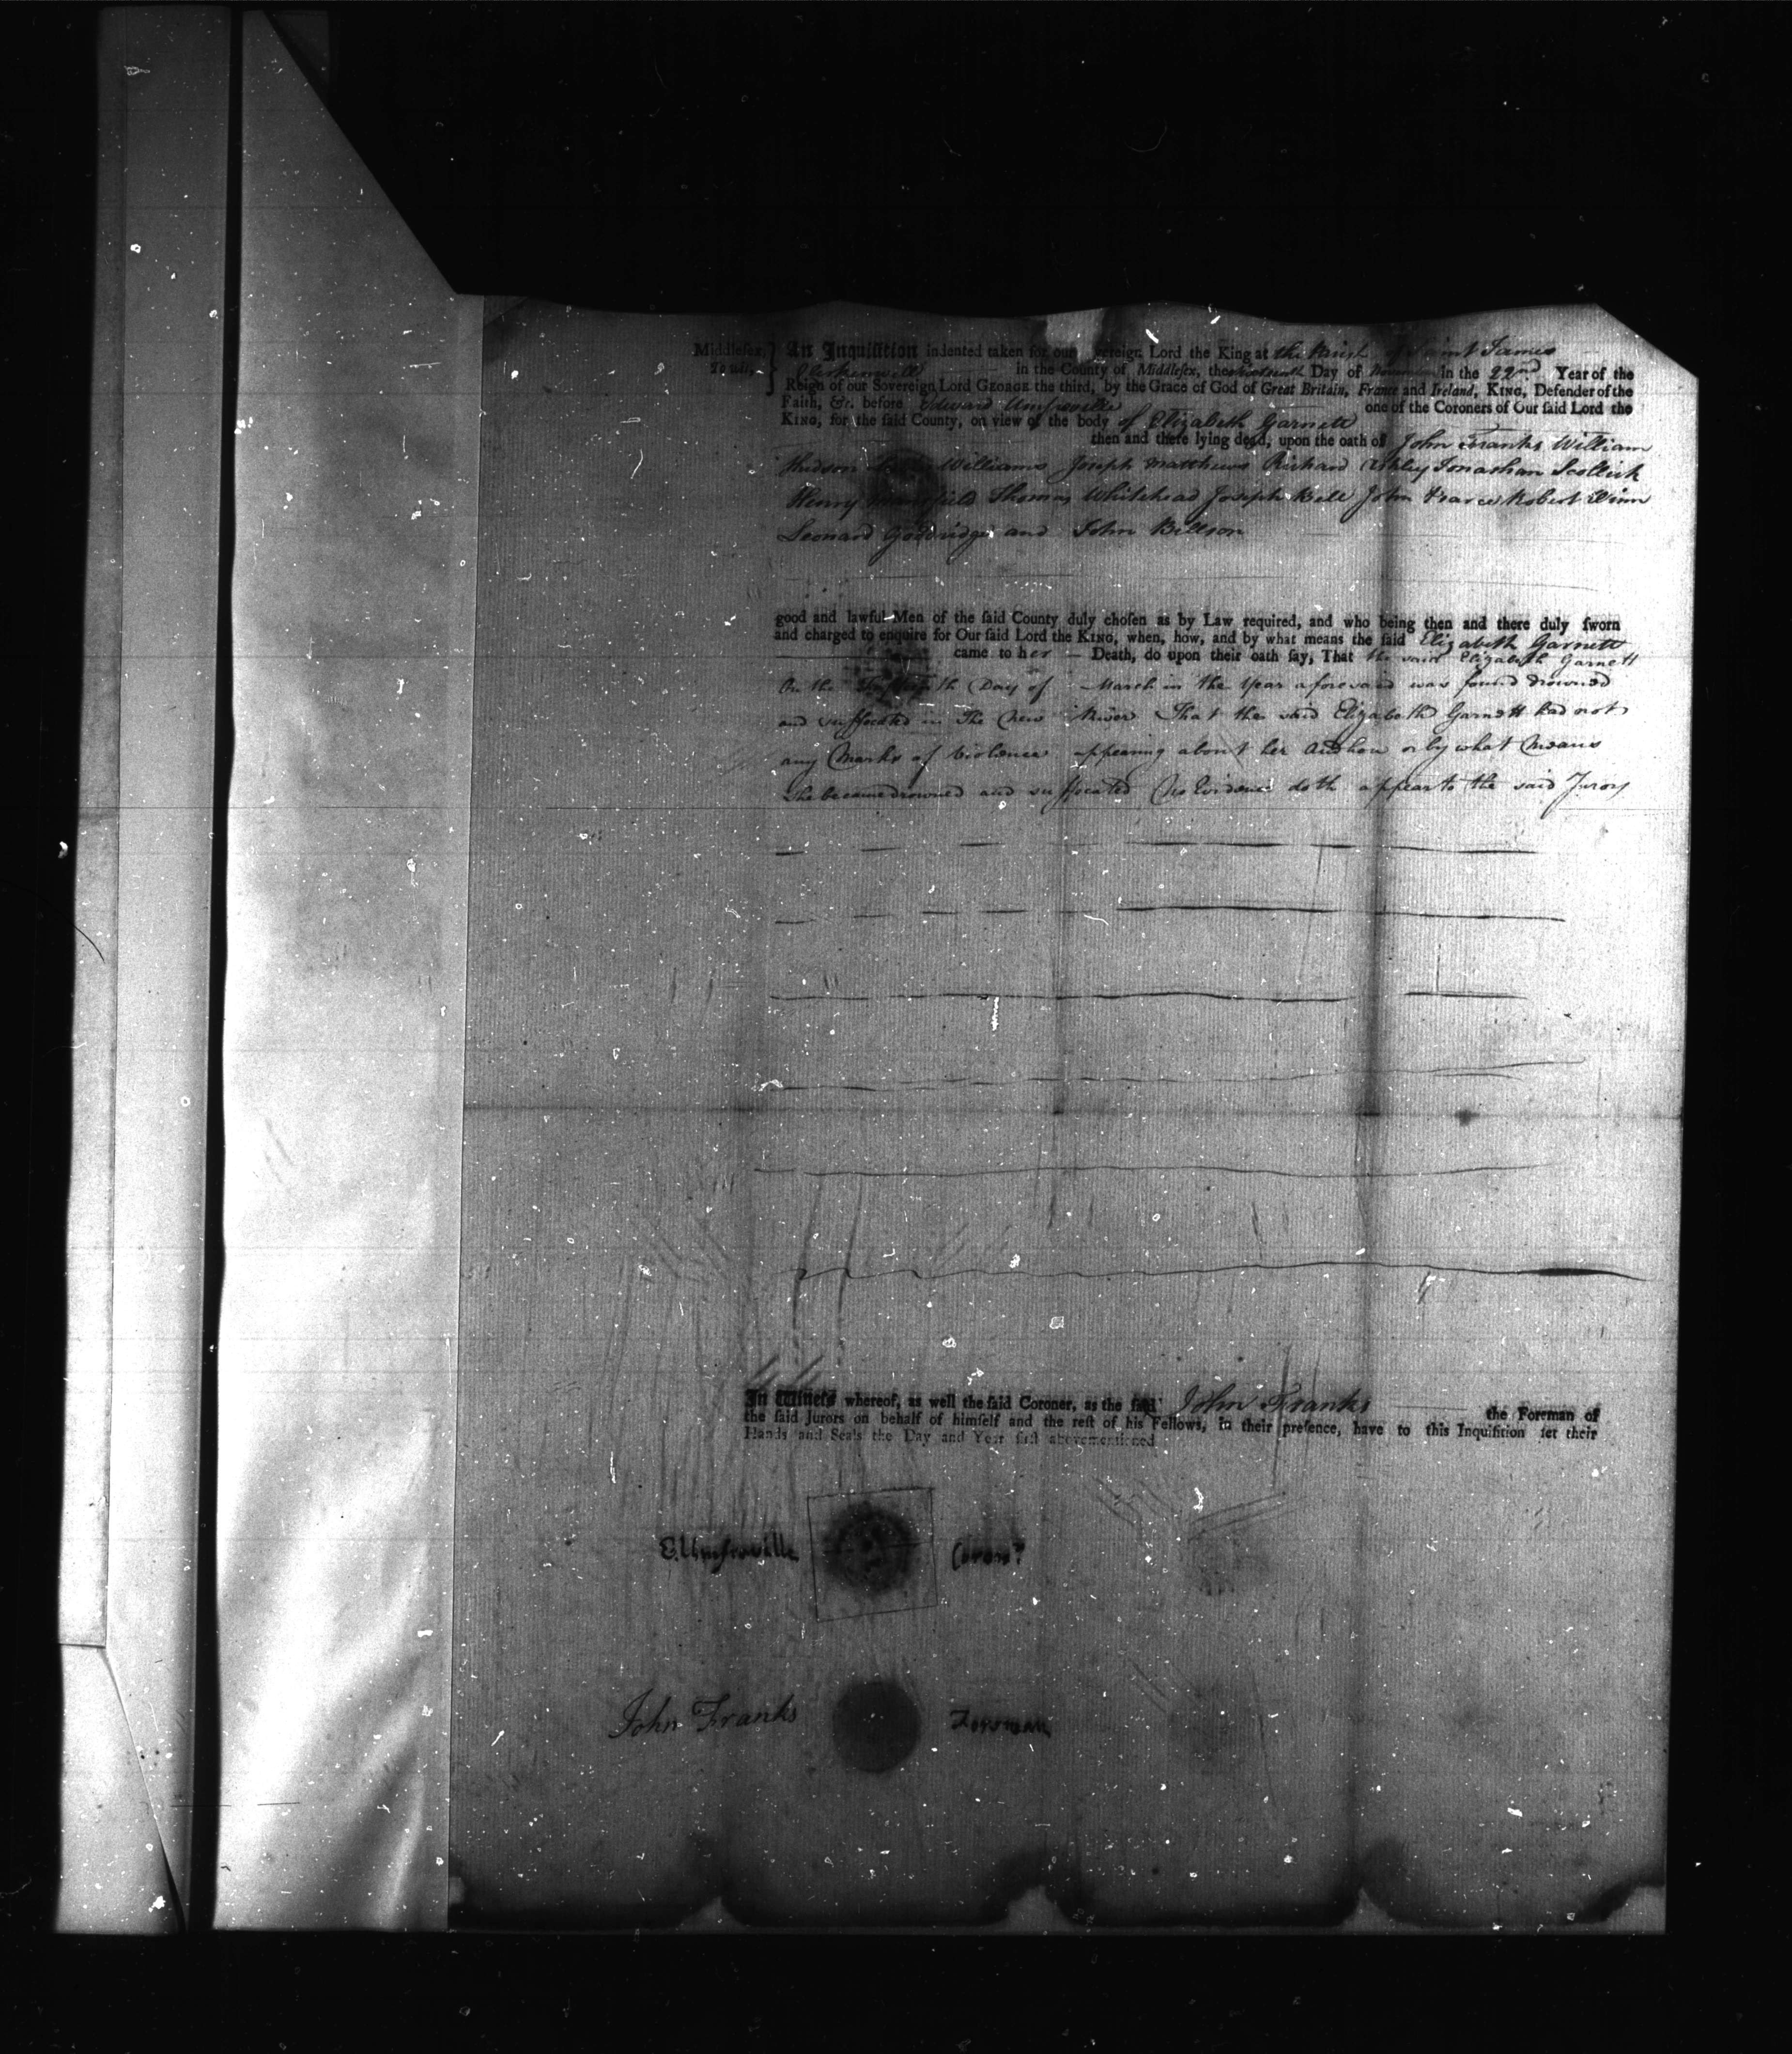 Middleſex, } An Inquiſition indented taken for our ſovereign Lord the King at the Parish of Saint James
to wit, Clerkenwell in the County of Middleſex, the Day of In the 22nd Year of the
Reign of our Sovereign Lord GEORGE the third, by the Grace of God of Great Britain, France and Ireland, KING, Defender of the
Faith, &c. before Edward Umfreville one of the Coroners of Our ſaid Lord the
KING, for the ſaid County, on view of the body of Elizabeth Garnett
then and there lying dead, upon the oath of John Franks William
Hudson Williams Joseph Matthews Richard Ashley Jonathan Scollick
Henry Thomas Whitehead Joseph Bell John Pearce Robert Winn
Leonard Goodridge and John Billson
good and lawful Men of the ſaid County duly choſen as by Law required, and who being then and there duly ſworn
and charged to enquire for Our ſaid Lord the KING, when, how, and by what means the ſaid Elizabeth Garnett
came to her Death, do upon their oath ſay, That the said Elizabeth Garnett
On the Day of March in the Year aforesaid was found drowned
and suffocated in The New River That the said Elizabeth Garnett had not
any Marks of Violence appearing about her And how or by what Means
She became drowned and suffocated No Evidence doth appear to the said Jurors
In Witneſs whereof, as well the ſaid Coroner, as the ſaid John Franks the Foreman of
the ſaid Jurors on behalf of himſelf and the reſt of his Fellows, in their preſence, have to this Inquiſition ſet their
Hands and Seals the Day and Year firſt abovementioned
E. Umfreville Coronr.
John Franks Foreman